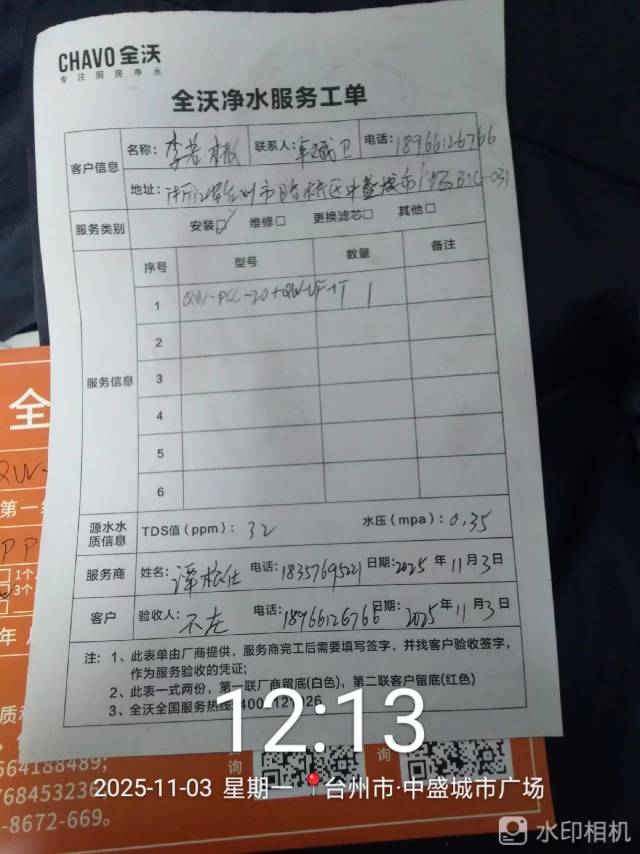 CHAVO 全沃
专注厨房净水
全沃净水服务工单
客户信息
名称：李若板 联系人：卓斌卫 电话：18966126766
地址：浙江省台州市路桥区中盛城市广场B1C-031
服务类别 安装☑ 维修□ 更换滤芯□ 其他□
服务信息
序号 型号 数量 备注
1 QW-PCC-20+QW-UF+T 1
2
3
4
5
6
源水水质信息 TDS值（ppm）：32 水压（mpa）：0.35
服务商 姓名： 电话：18357695221 日期：2025年11月3日
客户 验收人：不在 电话：18966126766 日期：2025年11月3日
注：1、此表单由厂商提供，服务商完工后需要填写签字，并找客户验收签字，
作为服务验收的凭证；
2、此表一式两份，第一联厂商留底(白色)，第二联客户留底(红色)
3、全沃全国服务热线
全
QW-
第一
PP
1个
3个
年
质
564188489;
768453236
-8672-669。
咨询
询
12:13
2025-11-03 星期一 台州市·中盛城市广场
水印相机